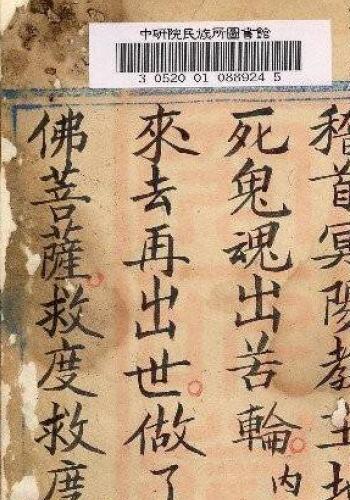 中研院民族所圖書館
3 0520 01 088924 5
稽首冥陽教主地
死鬼魂出苦輪。內
來去再出世。做了
佛菩薩。救度救度